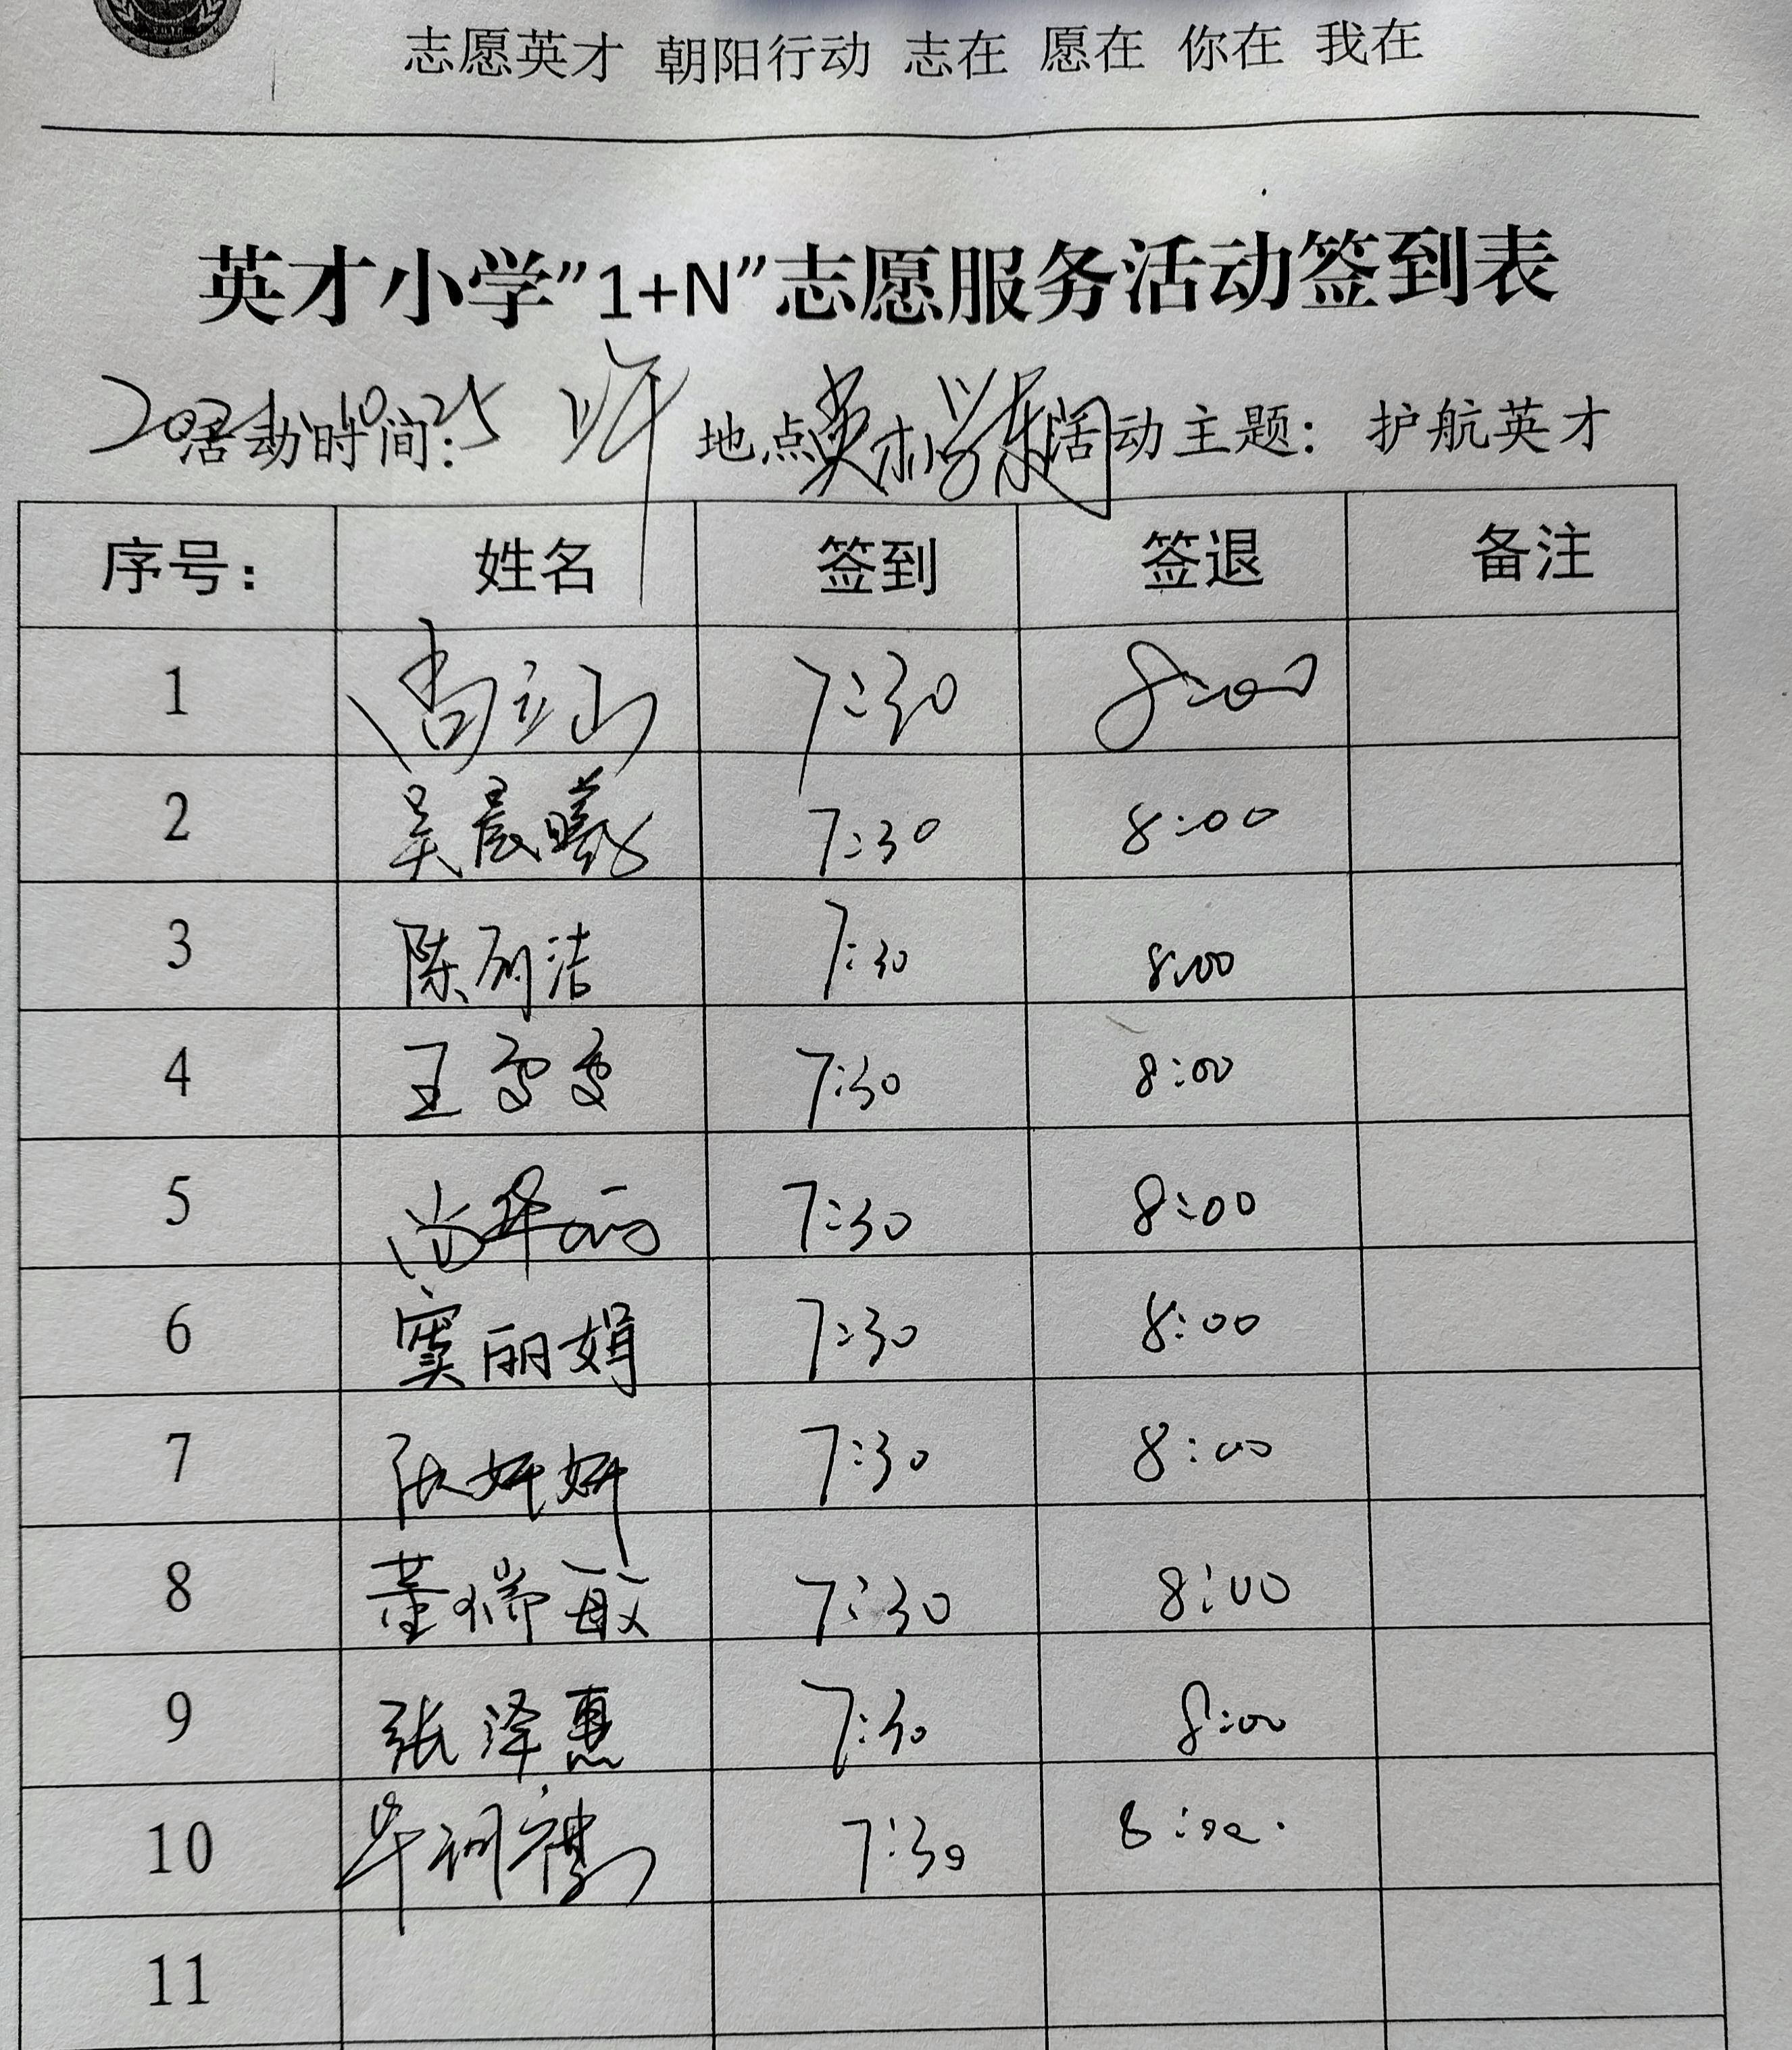 志愿英才 朝阳行动 志在 愿在 你在 我在
英才小学”1+N”志愿服务活动签到表
活动时间: 2024.10.25 上午 地点 英才小学东门 活动主题: 护航英才
序号: 姓名 签到 签退 备注
1 尚立山 7:30 8:00
2 吴晨曦 7:30 8:00
3 陈丽洁 7:30 8:00
4 王雪雪 7:30 8:00
5 7:30 8:00
6 窦丽娟 7:30 8:00
7 张妍妍 7:30 8:00
8 董瑞敏 7:30 8:00
9 张泽惠 7:30 8:00
10 7:30 8:00.
11